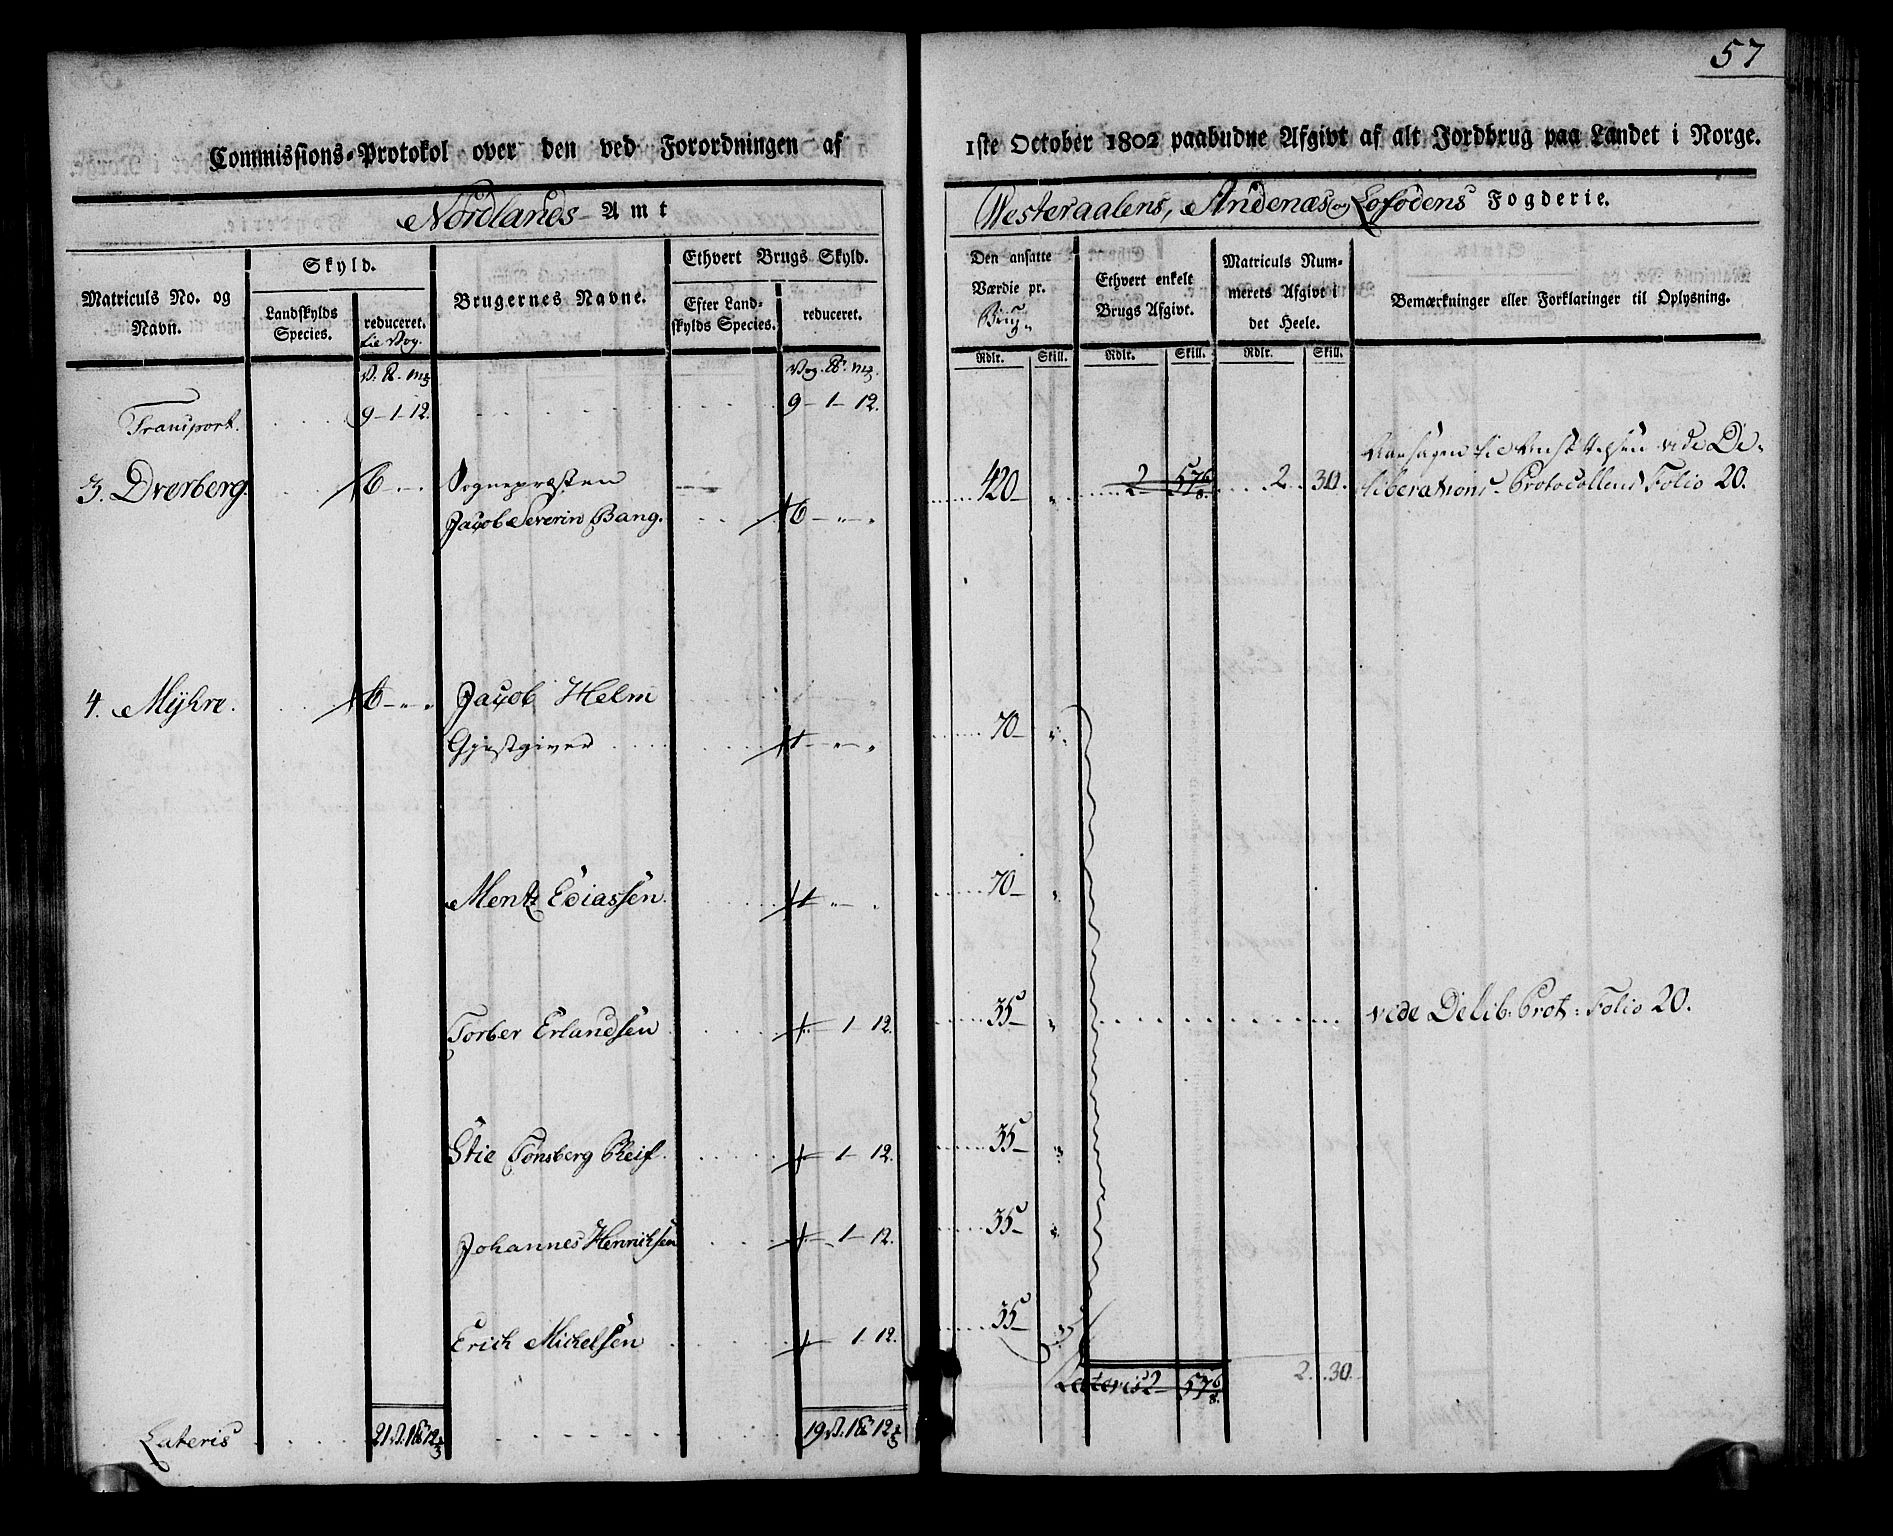 57
Commissions-Protokol over den ved Forordningen af 1ste October 1802 paabudne Afgivt af alt Jordbrug paa Landet i Norge.
Nordlands Amt
Westeraalens, Andenæs og Lofodens Fogderie.
Matriculs No. og Navn.
Skyld.
Landskylds Species.
reduceret.
Brugernes Navne.
Ethvert Brugs Skyld.
Efter Landskylds Species.
reduceret.
Den ansatte Værdie pr.
Ethvert enkelt Brugs Afgivt.
Matriculs Nummerets Afgivt i det Heele.
Bemærkninger eller Forklaringer til Oplysning.
Rdlr. Skill. Rdlr. Skill. Rdlr. Skill.
Transport. 9-1-12. 9-1-12.
3. Dverberg. 6 Sognepræsten 420 2 57 6/8 2. 30.
vide De-
liberations-Protocollens Folio 20.
Jacob Severin Bang. 6
4. Myhre. 6 Jacob Helm
Gjestgiver 1 70
Mentz Eliassen 1 70
Torber Erlandsen 1 12. 35 vide Delib: Prot: Folio 20.
Stie Tønsberg Reif 1 12. 35
Johannes Henriksen 1 12. 35
Erich Michelsen 1 12. 35
Lateris 2 57 6/8 2. 30
Lateris 21 V. 1 12 19 V. 1 12